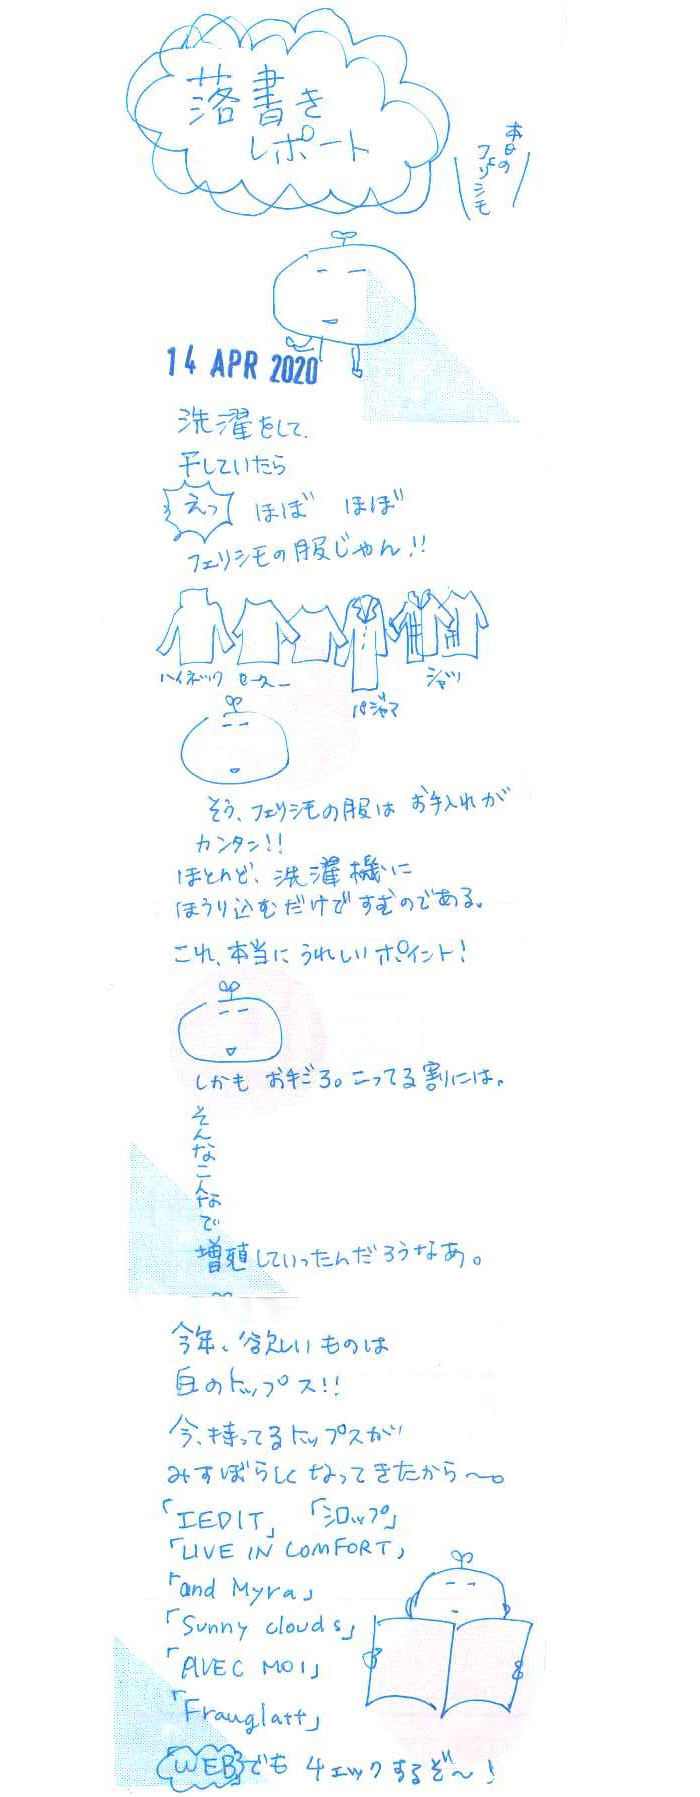 落書き
レポート
本日の
フェリシモ
14 APR 2020
洗濯をして、
干していたら
えっ ほぼ ほぼ
フェリシモの服じゃん!!
ハイネック セーター パジャマ シャツ
そう、フェリシモの服は お手入れが
カンタン!!
ほとんど、洗濯機に
ほうり込むだけですむのである。
これ、本当に うれしいポイント!
しかも お手ごろ。こってる割には。
そんなこんなで
増殖していったんだろうなあ。
今年、欲しいものは
白のトップス!!
今、持ってるトップスが
みすぼらしくなってきたから〜。
「IEDIT」 「シロップ」
「LIVE IN COMFORT」
「and Myra」
「Sunny clouds」
「AVEC MOI」
「Frauglatt」
WEBでも チェックするぞ〜!